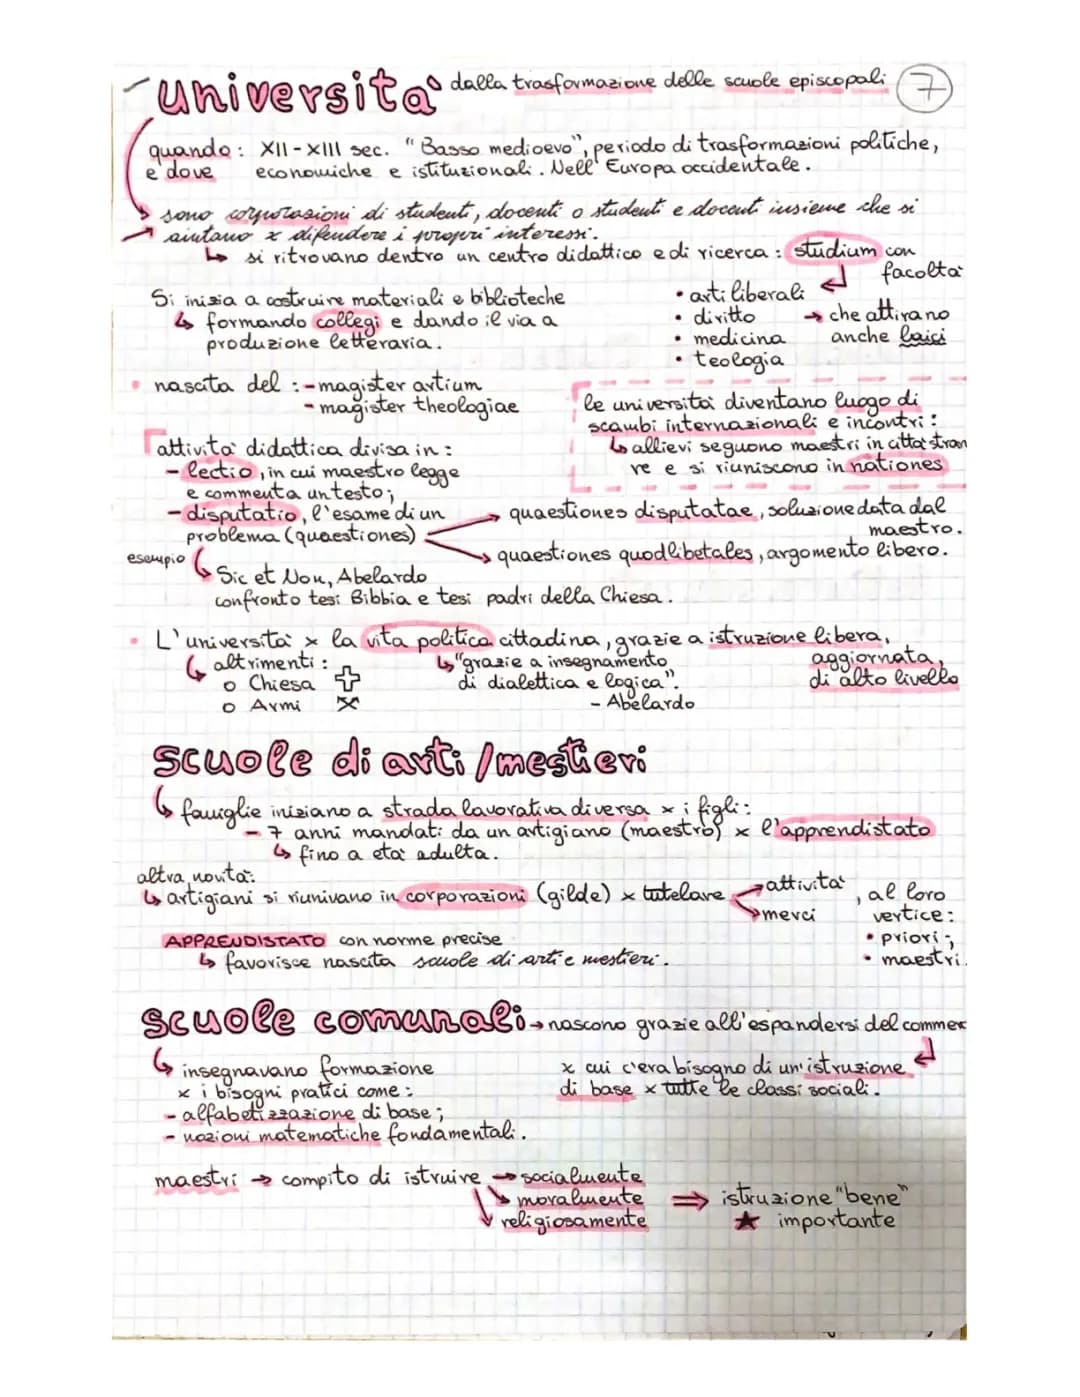 università dalla trasformazione delle scuole episcopali 7
quando: XII-XIII sec. "Basso medioevo", periodo di trasformazioni politiche,
e dove economiche e istituzionali. Nell'Europa occidentale.
sono corporazioni di studenti, docenti o studenti e docenti insieme che si
aiutano x difendere i propri interessi.
si ritrovano dentro un centro didattico e di ricerca: studium con
facoltà
Si inizia a costruire materiali e biblioteche
formando collegi e dando il via a
produzione letteraria.
• arti liberali
• diritto → che attirano
• medicina anche laici
• teologia
• nascita del: - magister artium
- magister theologiae
le università diventano luogo di
scambi internazionali e incontri:
allievi seguono maestri in città stran
re e si riuniscono in nationes
attività didattica divisa in:
- lectio, in cui maestro legge
e commenta un testo;
- disputatio, l'esame di un
problema (quaestiones)
quaestiones disputatae, soluzione data dal
maestro.
quaestiones quodlibetales, argomento libero.
esempio
Sic et Non, Abelardo
confronto tesi Bibbia e tesi padri della Chiesa.
• L'università x la vita politica cittadina, grazie a istruzione libera,
aggiornata,
di alto livello
altrimenti:
o Chiesa
o Armi
"grazie a insegnamento
di dialettica e logica".
- Abelardo
scuole di arti/mestieri
famiglie iniziano a strada lavorativa diversa x i figli:
- 7 anni mandati da un artigiano (maestro) x l'apprendistato
fino a età adulta.
altra novità:
artigiani si riunivano in corporazioni (gilde) x tutelare attività, al loro
merci vertice:
• priori;
• maestri.
APPRENDISTATO con norme precise
favorisce nascita scuole di arti e mestieri.
scuole comunali → nascono grazie all'espandersi del commer
x cui c'era bisogno di un'istruzione
di base x tutte le classi sociali.
insegnavano formazione
x i bisogni pratici come:
- alfabetizzazione di base;
- nozioni matematiche fondamentali.
maestri → compito di istruire → socialmente
moralmente
religiosamente
⇒ istruzione "bene"
★ importante